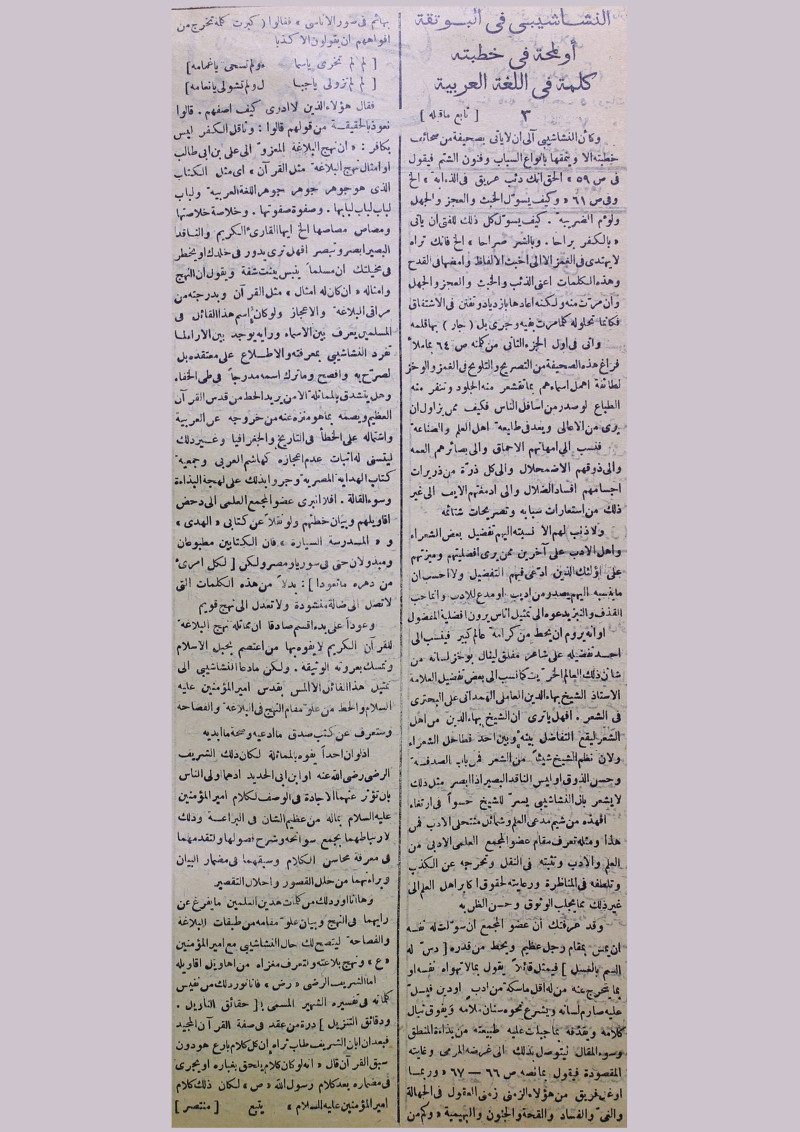 النشاشيبي في البوتقة
أو لمحة في خطبته
كلمة في اللغة العربية
٣ [ تابع ماقبله ]
وكأن النشاشيبي آلى ان لا يأتي بصحيفة من صحائف
خطبته الا وينمقها بأنواع السباب وفنون الشتم فيقول
في ص ٥٩ « الحق انك دئب عريق في الذابة » الخ
وفي ص ٦١ « وكيف يسول الخبث والعجز والجهل
ولؤم الضريبة . كيف يسول كل ذلك للفتى ان يأتي
« بالكفر براحا . وبالشر صراحا » الخ فانك تراه
لا يهتدى في الغمز الا الى أخبث الالفاظ وامضها في القدح
وهذه الكلمات اعنى الذئب والخبث والعجز والجهل
وان مرت منه ولكنه اعادها بازدياد وتفنن في الاشتقاق
فكأنما تحاوله كلما مرت بفيه وجرى بل ( جار ) بها قلمه
واتى في اول الجزء الثاني من كلمته ص ٦٤ بما ملأ
فراغ هذه الصحيفة من التصريح والتلويح في الغمز والوخز
لطائفة اهمل اسماءهم بما تقشعر منه الجلود وتنفر منه
الطباع لو صدر من اسافل الناس فكيف ممن يزاول ان
يرى من الاعالى ويعد في طليعة اهل العلم والصناعة
فنسب الى امهاتهم الاحماق والى بصائرهم العمه
والى ذوقهم الاضمحلال والى كل ذرة من ذريرات
اجسامهم افساد الضلال والى ادمغتهم الايف الى غير
ذلك من استعارات سبابه وتصريحات شتائمه
ولا ذنب لهم الا نسبته اليهم تفضيل بعض الشعراء
واهل الادب على آخرين ممن يرى افضليتهم وميزتهم
على اولئك الذين ادعى فيهم التفضيل ولا احسب ان
ما ينسبه اليهم يصدر من اديب او مدع للادب وانما حب
القذف والتبز يدعوه الى تمثيل اناس يرون افضلية المفضول
او انه يروم ان يحط من كرامة عالم كبير فينسب الى
احد تفضيله على شاعر مفلق لينال بوخز لسانه من
شأن ذلك العالم الحر يت كما نسب الى بعض تفضيل العلامة
الاستاذ الشيخ بهاء الدين العاملي الهمداني على البحترى
في الشعر . أفهل ياترى ان الشيخ بهاء الدين من اهل
الشعر ليقع التفاضل بينه وبين احد فطاحل الشعراء
ولان نظم الشيخ شيئاً من الشعر فمن باب الصدفة
وحسن الذوق او ليس الناقد البصير اذا ابصر مثل ذلك
لا يشعر بان النشاشيبي يسر للشيخ حسواً في ارتغاء
أفهذه من شيم مدعى العلم وشمائل منتحلى الادب فمن
هذا ومثله تعرف مقام عضو المجمع العلمي الادبى من
العلم والادب وتثبته في النقل وتحرجه عن الكذب
وتلطفه في المناظرة ورعايته لحقوق اكابر اهل العلم الى
غير ذلك بما يجلب الوثوق وحسن الظن به
وقد عرفتك ان عضو المجمع ان سولت له نفسه
ان يمس بمقام رجل عظيم ويحط من قدره [ دس له
السم بالعسل ] فيمثل قائلاً يقول بما لا تهواه نفسه او
بما يتحرج عنه من له اقل ماسكة من ادب او دين فيسل
عليه صارم لسانه ويشرع نحوه سنان ملامه ويفوق نبال
كلامه ويقذفه بما جبلت عليه طبيعته من بذاءة المنطق
وسوء المقال ليتوصل بذلك الى غرضه المرمي وغايته
المقصودة فيقول بما نصه ص ٦٦ – ٦٧ « وربما
اوغل فريق من هؤلاء الزمنى زمنى العقول في الجهالة
والنى والفساد والقحة والجنون والبهيمية « وكم من
بهائم في صور الاناسي » فقالوا ( كبرت كلمة تخرج من
افواههم ان يقولون الا كذبا
[ لم لم تخرى ياسما * ولم تسحى ياغمامه ]
[ لم لم تزولى ياجبا ل ولم تشولى يا نعامه ]
فقال هؤلاء الذين لا ادرى كيف اصفهم . قالوا
نعوذ بالحقيقة من قولهم قالوا : وناقل الكفر ليس
بكافر : « ان نهج البلاغة المعزو الى على بن ابى طالب
او امثال نهج البلاغة مثل القرآن » اى مثل الكتاب
الذى هو جوهر جوهر جوهر اللغة العربية ولباب
لباب لباب لبابها . وصفوة صفوتها . وخلاصة خلاصتها
ومصاص مصاصها الخ ايها القارئ الكريم والناقد
البصير ابصر وتبصر أفهل ترى يدور في خلدك او يخطر
في مخيلتك ان مسلماً ينبس ببنت شفة ويقول ان النهج
وامثاله « ان كان له امثال » مثل القرآن وبدرجته من
مراقى البلاغة والاعجاز ولو كان إسم هذا القائل في
المسلمين يعرف بين الاسماء ورايه يوجد بين الآراء لما
تفرد النشاشيبي بمعرفته والاطلاع على معتقده بل
لصرح به وافصح وما ترك اسمه مدرجاً في طى الخفاء
وهل يتشدق بالمماثلة الا من يريد الحط من قدس القرآن
العظيم ويصمه بما هو منزه عنه من خروجه عن العربية
واشتماله على الخطأ في التاريخ والجغرافيا وغير ذلك
ليتسنى له اثبات عدم اعجازه كهاشم العربي وجمعية
كتاب الهداية المصرية وجروا بذلك على لهجة البذاءة
وسوء القالة . افلا انبرى عضو المجمع العلمى الى دحض
اقاويلهم وبيان خطئهم ولو نقلاً عن كتابي « الهدى »
و « المدرسة السيارة » فان الكتابين مطبوعان
ومبذولان حتى في سوريا ومصر ولكن [ لكل امرئ
من دهره ماتعودا ] : بدلاً من هذه الكلمات التى
لا تصل الى ضالة منشودة ولا تعدل الى نهج قويم
وعوداً على بدء اقسم صادقا ان مماثلة نهج البلاغة
للقرآن الكريم لا يفوه بها من اعتصم بحبل الاسلام
وتمسك بعروته الوثيقة . ولكن ما دعا النشاشيبي الى
تمثيل هذا القائل الا المس بقدس امير المؤمنين عليه
السلام والحط من علو مقام النهج في البلاغة والفصاحة
وستعرف عن كثب صدق ما ادعيه وصحة ما ابديه
اذ لو ان احداً يفوه بالمماثلة لكان ذلك الشريف
الرضى رضى الله عنه او ابن ابى الحديد اذ هما اولى الناس
بان تؤثر عنهما الاجادة في الوصف لكلام امير المؤمنين
عليه السلام بماله من عظيم الشان في البراعة وذلك
لارتباطهما بجمع سوانحه وشرح فصولها ولتقدمهما
في معرفة محاسن الكلام وسبقهما في مضمار البيان
ولبرائتهما من خلل القصور واخلال التقصير
وها انا اورد لك من كلمات هذين العلمين ما يفرغ عن
رايهما في النهج وبيان علو مقامه من طبقات البلاغة
والفصاحة ليتضح لك حال النشاشيبي مع امير المؤمنين
« ع » ونهج بلاغته ولتعرف مغزاه من اهاويل اقاويله
اما الشريف الرضى « رض » فانا نورد لك من نفيس
كلماته في تفسيره الشهير المسمى بـ [ حقائق التأويل .
ودقائق التنزيل ] درة من عقد في صفة القرآن المجيد
فبعد ان ابان الشريف طاب ثراه ان كل كلام بارع هو دون
سبق القرآن قال « انه لو كان كلام يلحق بغباره او يجرى
في مضماره بعد كلام رسول الله « ص » لكان ذلك كلام
امير المؤمنين عليه السلام » يتبع [ منتصر ]